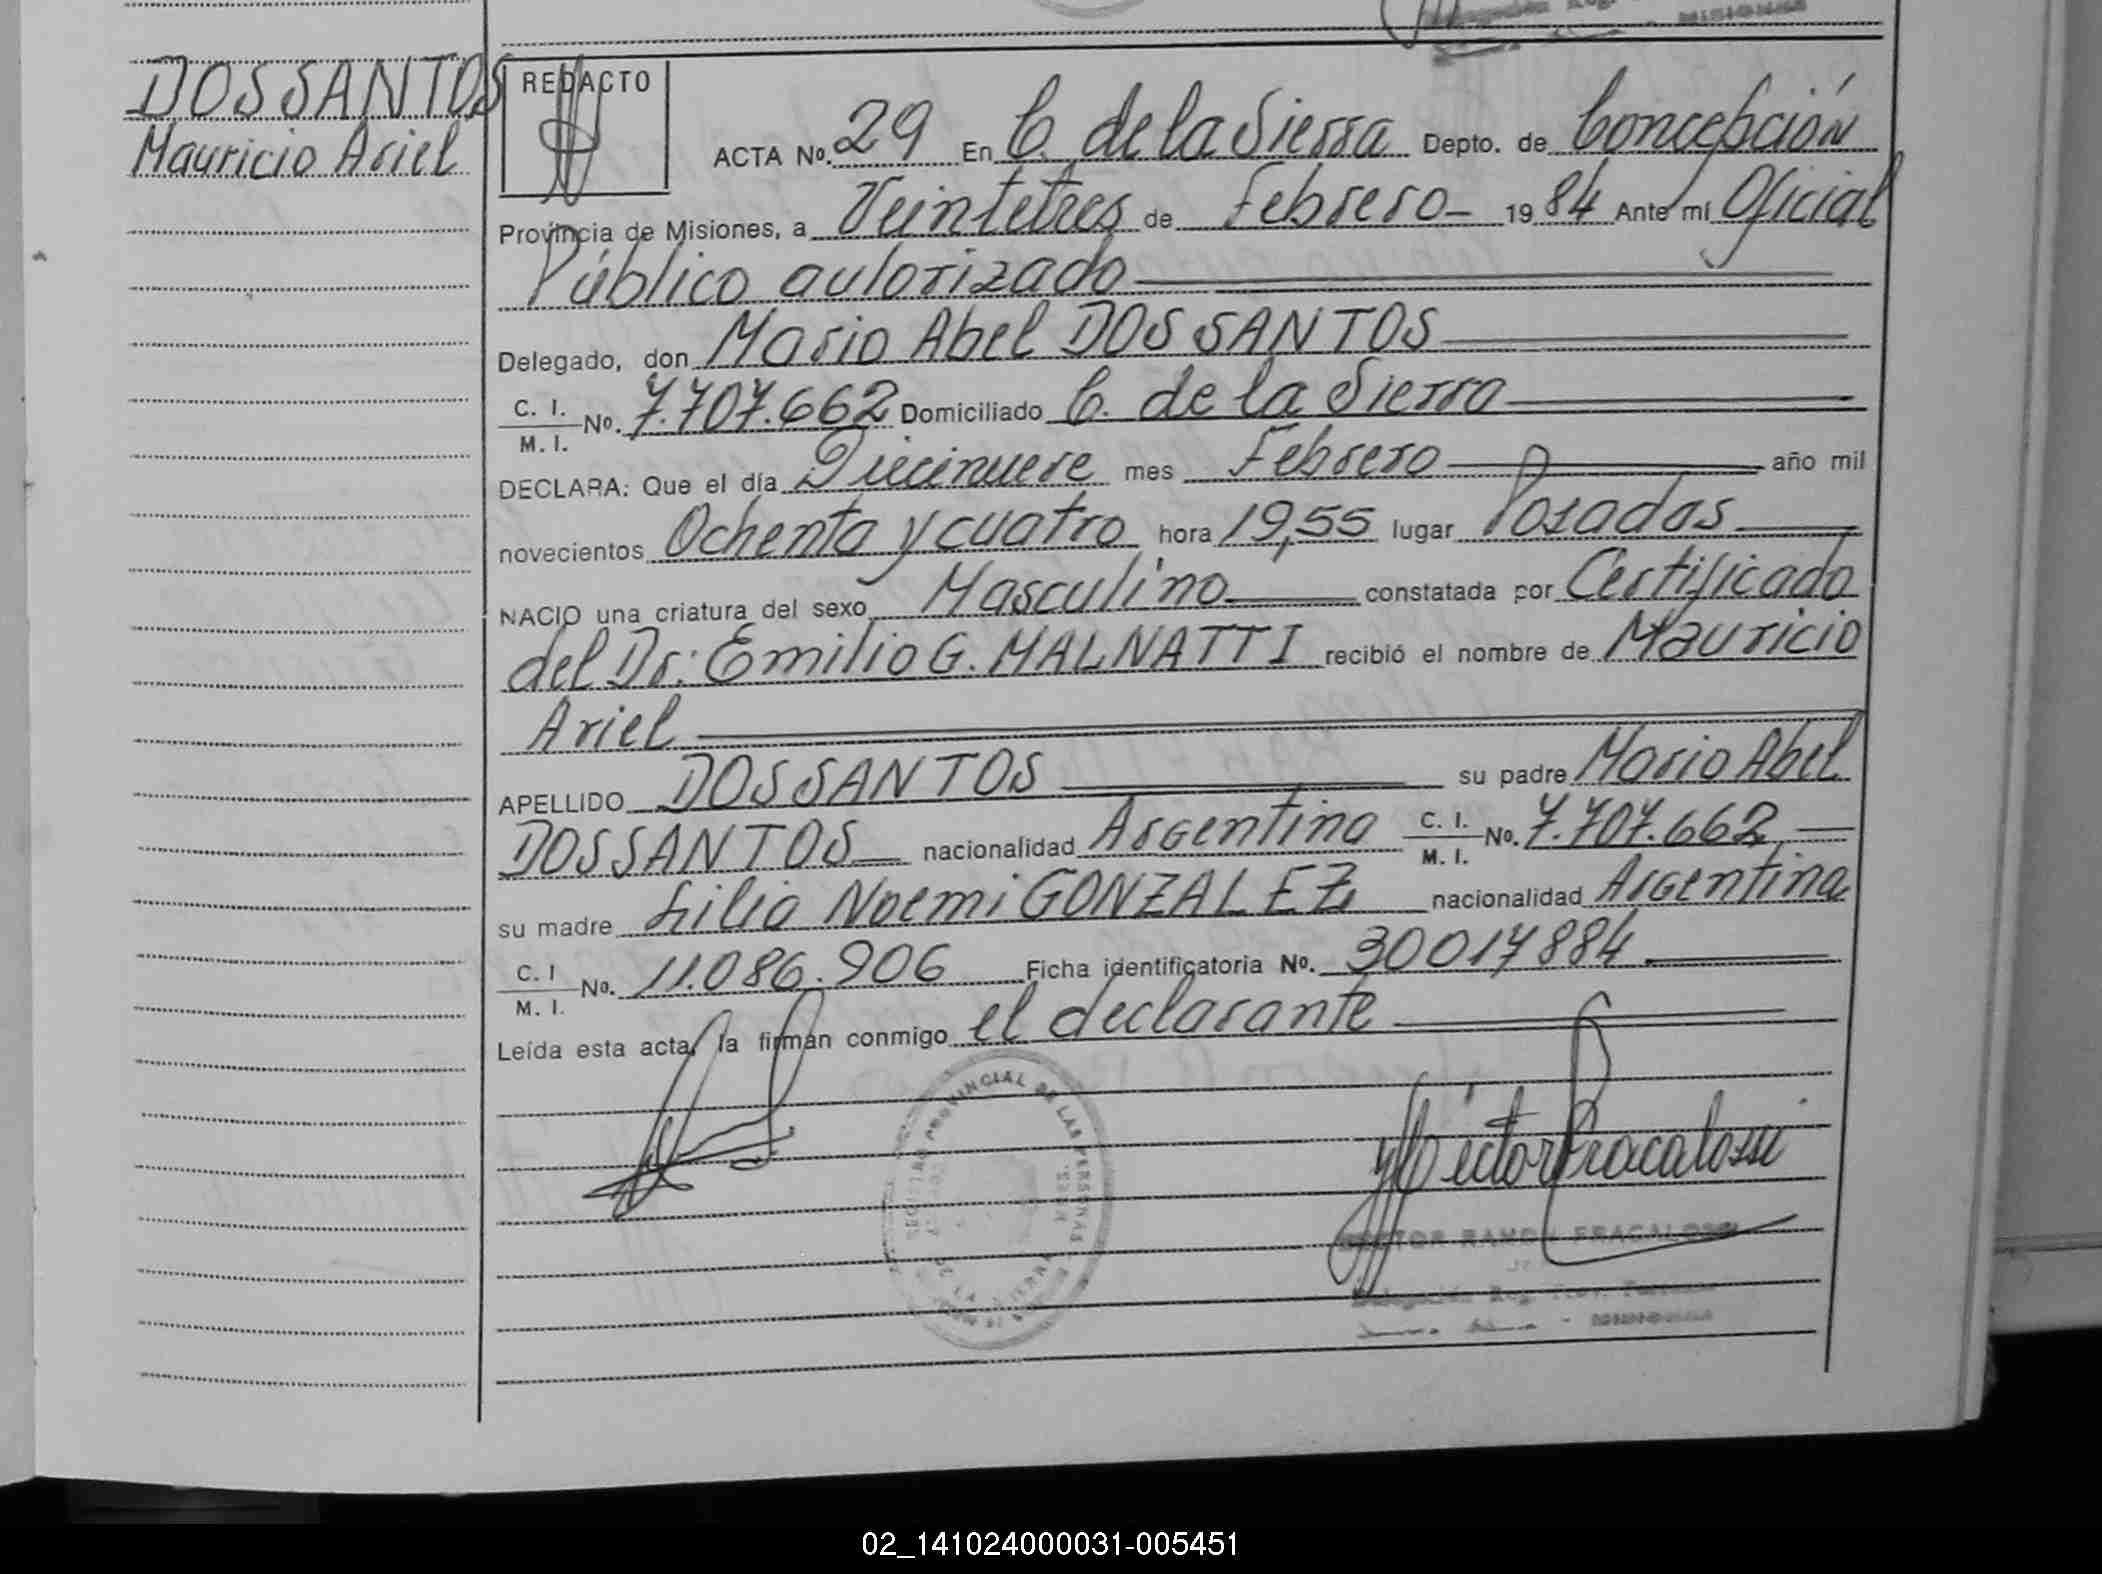 DOS SANTOS
Mauricio Ariel
REDACTO
ACTA No. 29 En C. de la Sierra Depto. de Concepción
Provincia de Misiones, a Veintetres de Febrero 1984 Ante mí Oficial
Público autorizado
Delegado, don Mario Abel DOS SANTOS
C. I. / M. I. No. 7.707.662 Domiciliado C. de la Sierra
DECLARA: Que el día Diecinueve mes Febrero año mil
novecientos Ochenta y cuatro hora 19,55 lugar Posadas
NACIO una criatura del sexo Masculino constatada por Certificado
del Dr: Emilio G. MALNATTI recibió el nombre de Mauricio
Ariel
APELLIDO DOS SANTOS su padre Mario Abel
DOS SANTOS nacionalidad Argentina C. I. / M. I. No. 7.707.662,
su madre Lilia Noemi GONZALEZ, nacionalidad Argentina
C. I / M. I. No. 11.086.906 Ficha identificatoria No. 30017884
Leída esta acta, la firman conmigo el declarante
PROVINCIAL DE LAS PERSONAS
DE LA SIERRA
Héctor Fracalossi
HECTOR RAMON FRACALOSSI
MISIONES
02_141024000031-005451